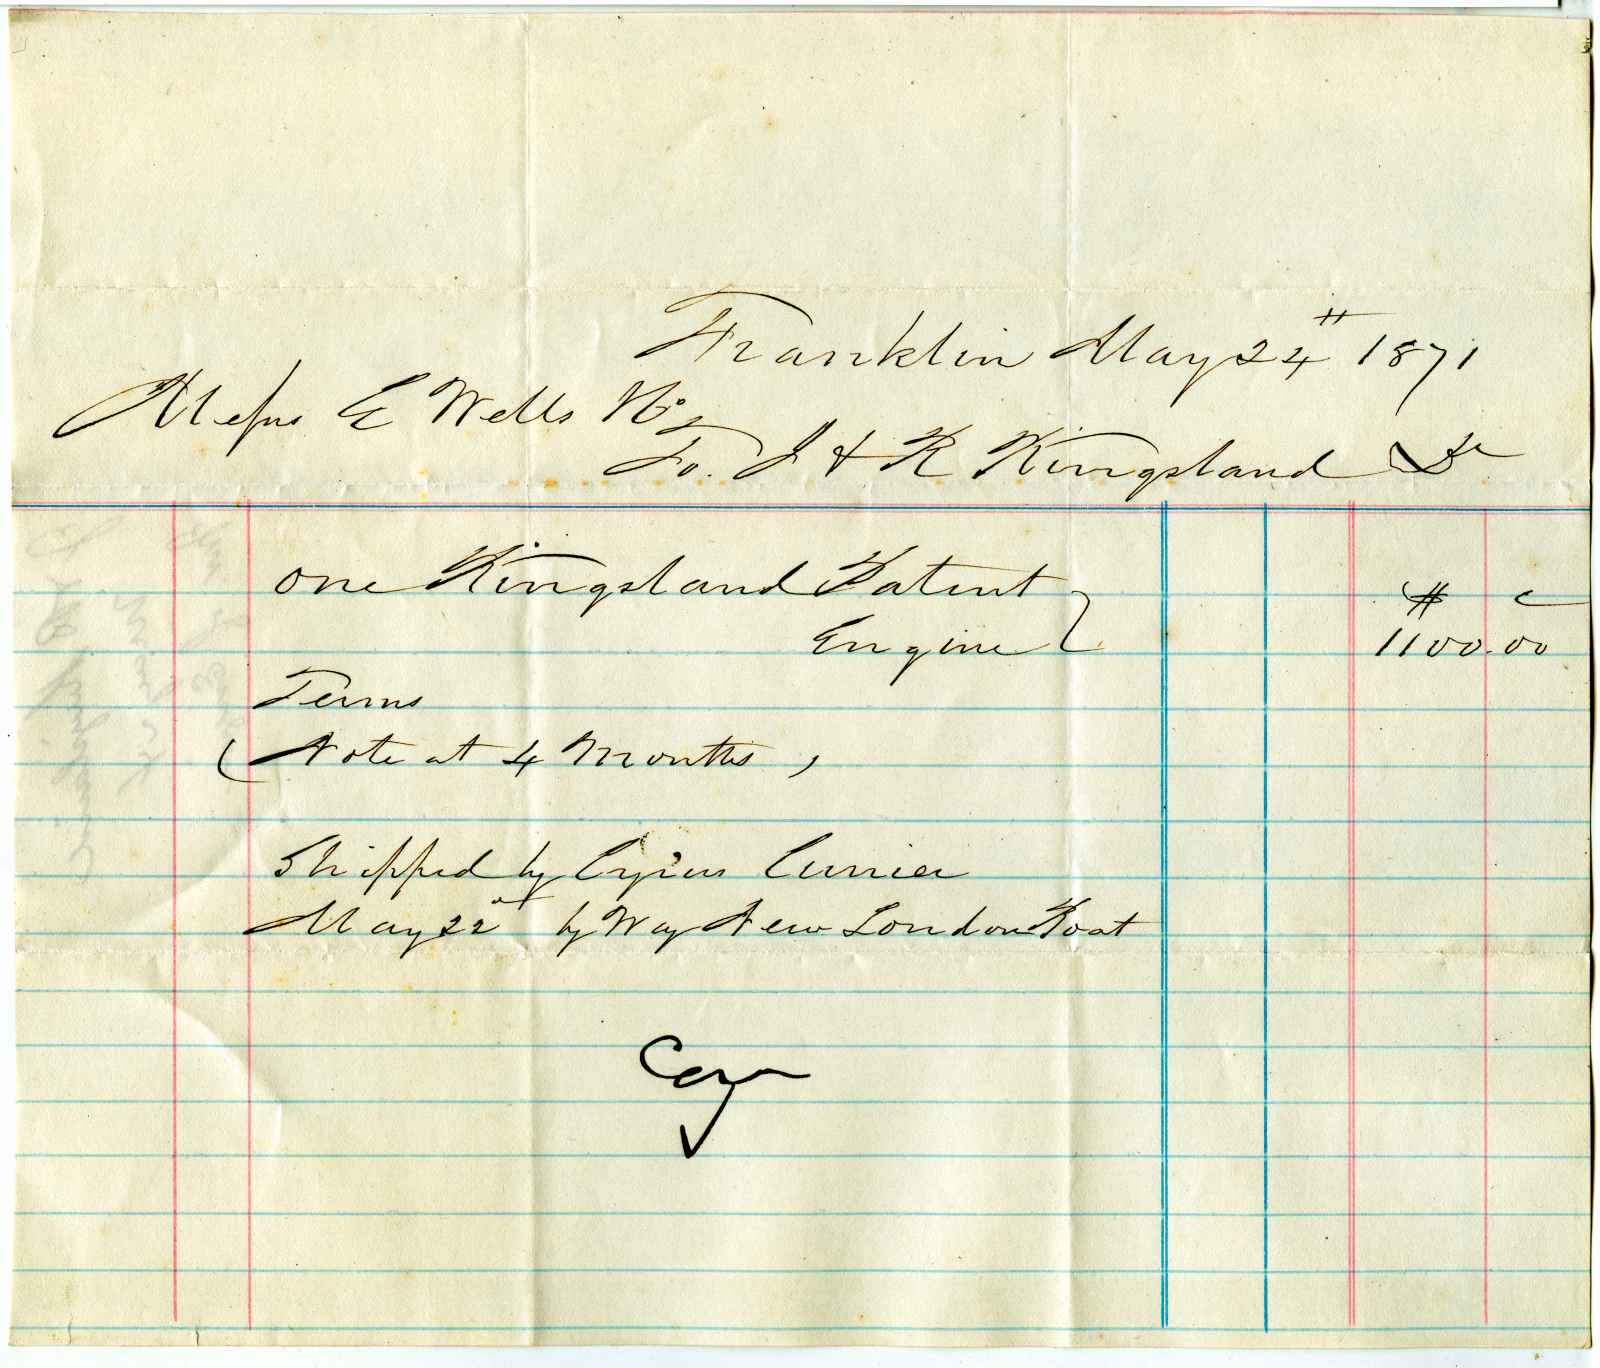 Franklin May 24th 1871
Messrs E Wells
To. J & R Kingsland Dr
One Kingsland Patent
Engine
$ c
1100.00
Terms
(Note at 4 Months,
Shipped by Cyrus Currier
May 22 by Way New London Boat